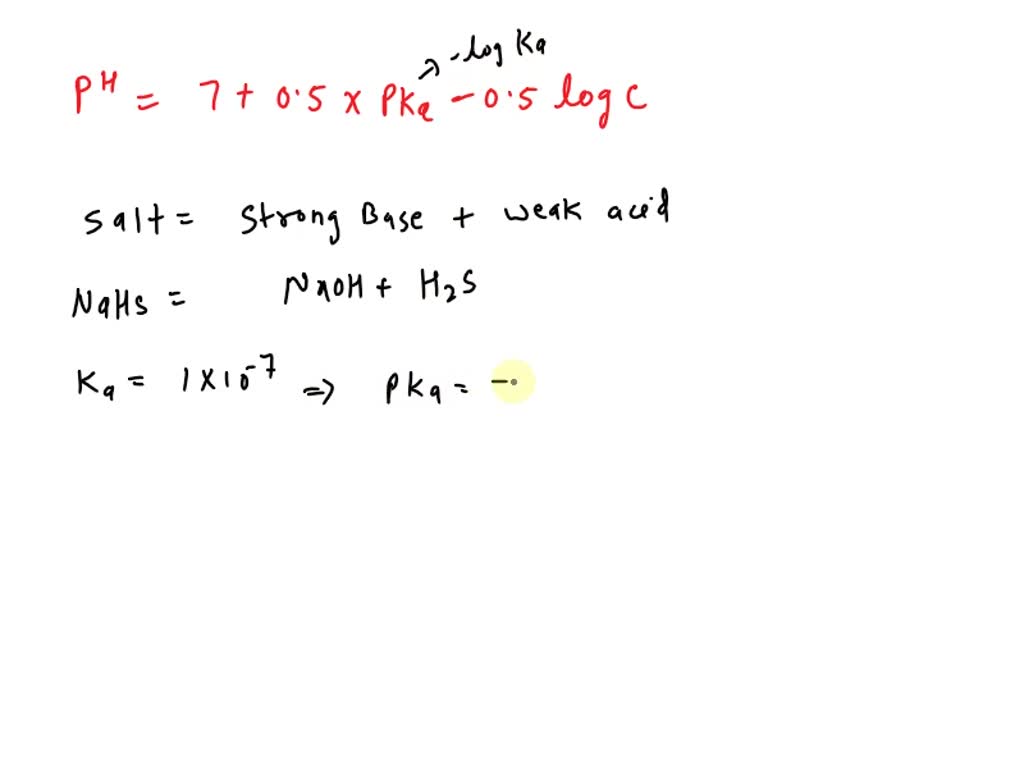 → -log Ka
PH = 7 + 0.5 x PKa - 0.5 log C
Salt = Strong Base + weak acid
NaHS = NaOH + H2S
Ka = 1 X 10^-7 => PKa = -